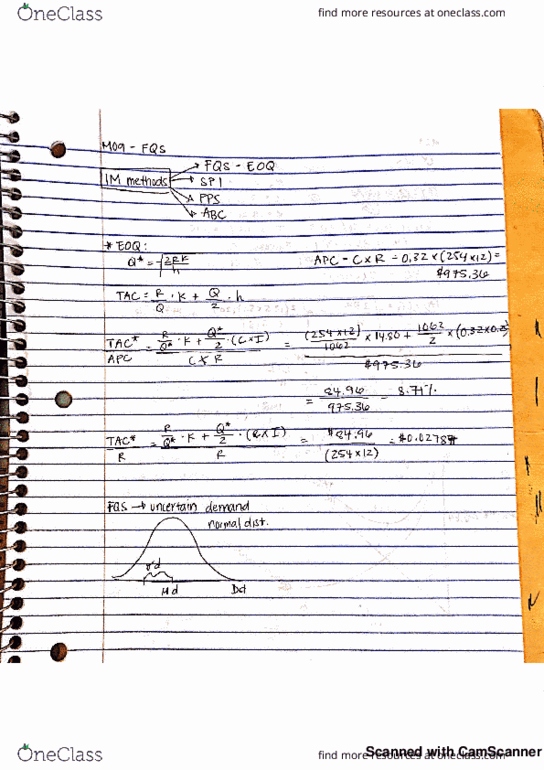 OneClass
find more resources at oneclass.com
M09 - FQS
IM methods
FQS - EOQ
SPI
PPS
ABC
* EOQ:
Q* = √2RK/h
APC = C x R = 0.32 x (254 x 12) =
$975.36
TAC = R/Q · K + Q/2 · h
TAC*/APC = R/Q* · K + Q*/2 · (C x I) / C x R = (254 x 12)/1062 x 14.80 + 1062/2 x (0.32 x 0.2 / $975.36
= 84.96/975.36 = 8.71%
TAC*/R = R/Q* · K + Q*/2 · (C x I) / R = $84.96/(254 x 12) = $0.0278
FQS → uncertain demand
normal dist.
σd
μd
OneClass
find more resources at oneclass.com
Scanned with CamScanner